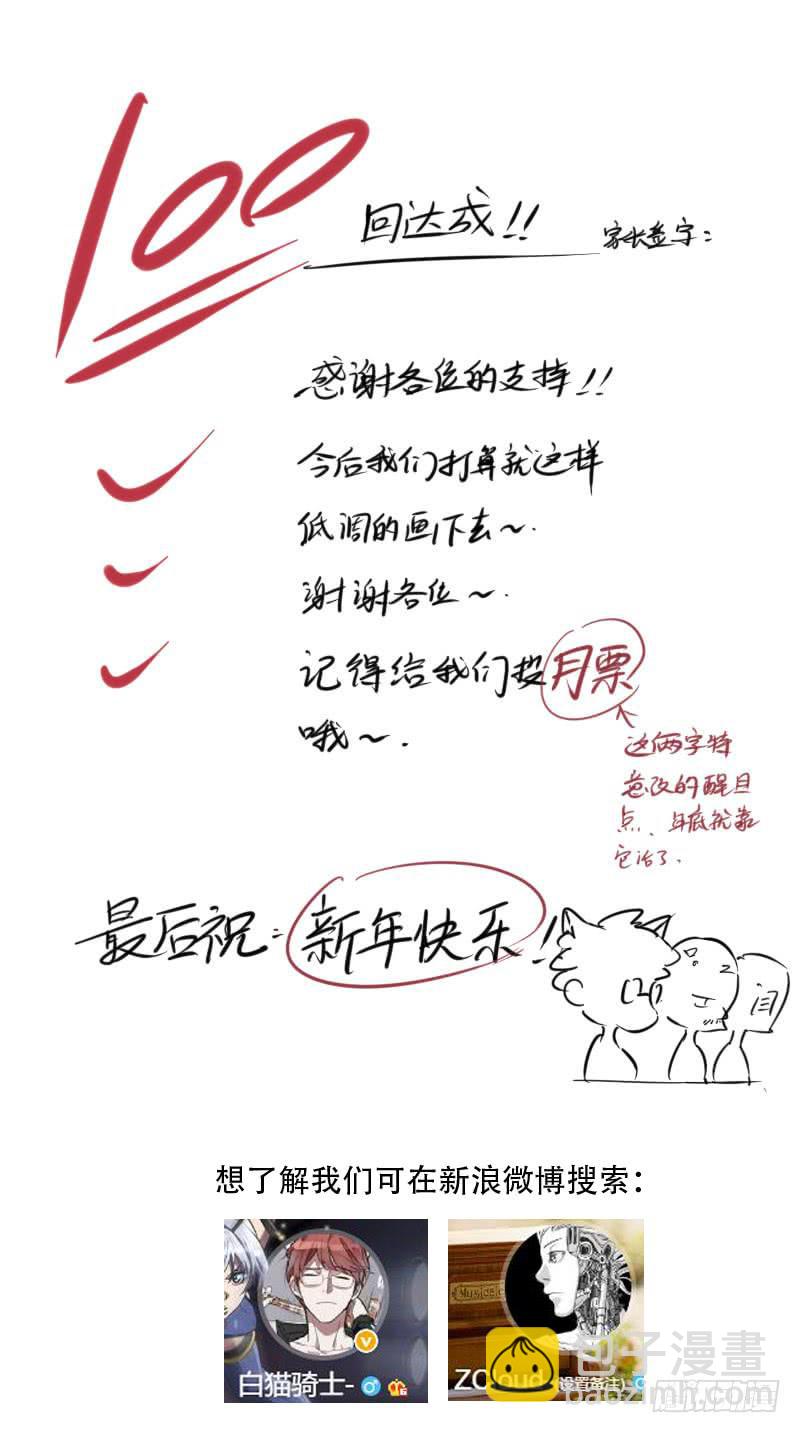 100
回达成!!
家长签字:
感谢各位的支持!!
今后我们打算就这样
低调的画下去~.
谢谢各位~.
记得给我们投月票
哦~.
这俩字特
意改的醒目
点、月底就靠
它治了.
最后祝:新年快乐!
想了解我们可在新浪微博搜索:
Musice
白猫骑士-
ZCloud
设置备注)
包子漫畫
baozimh.com